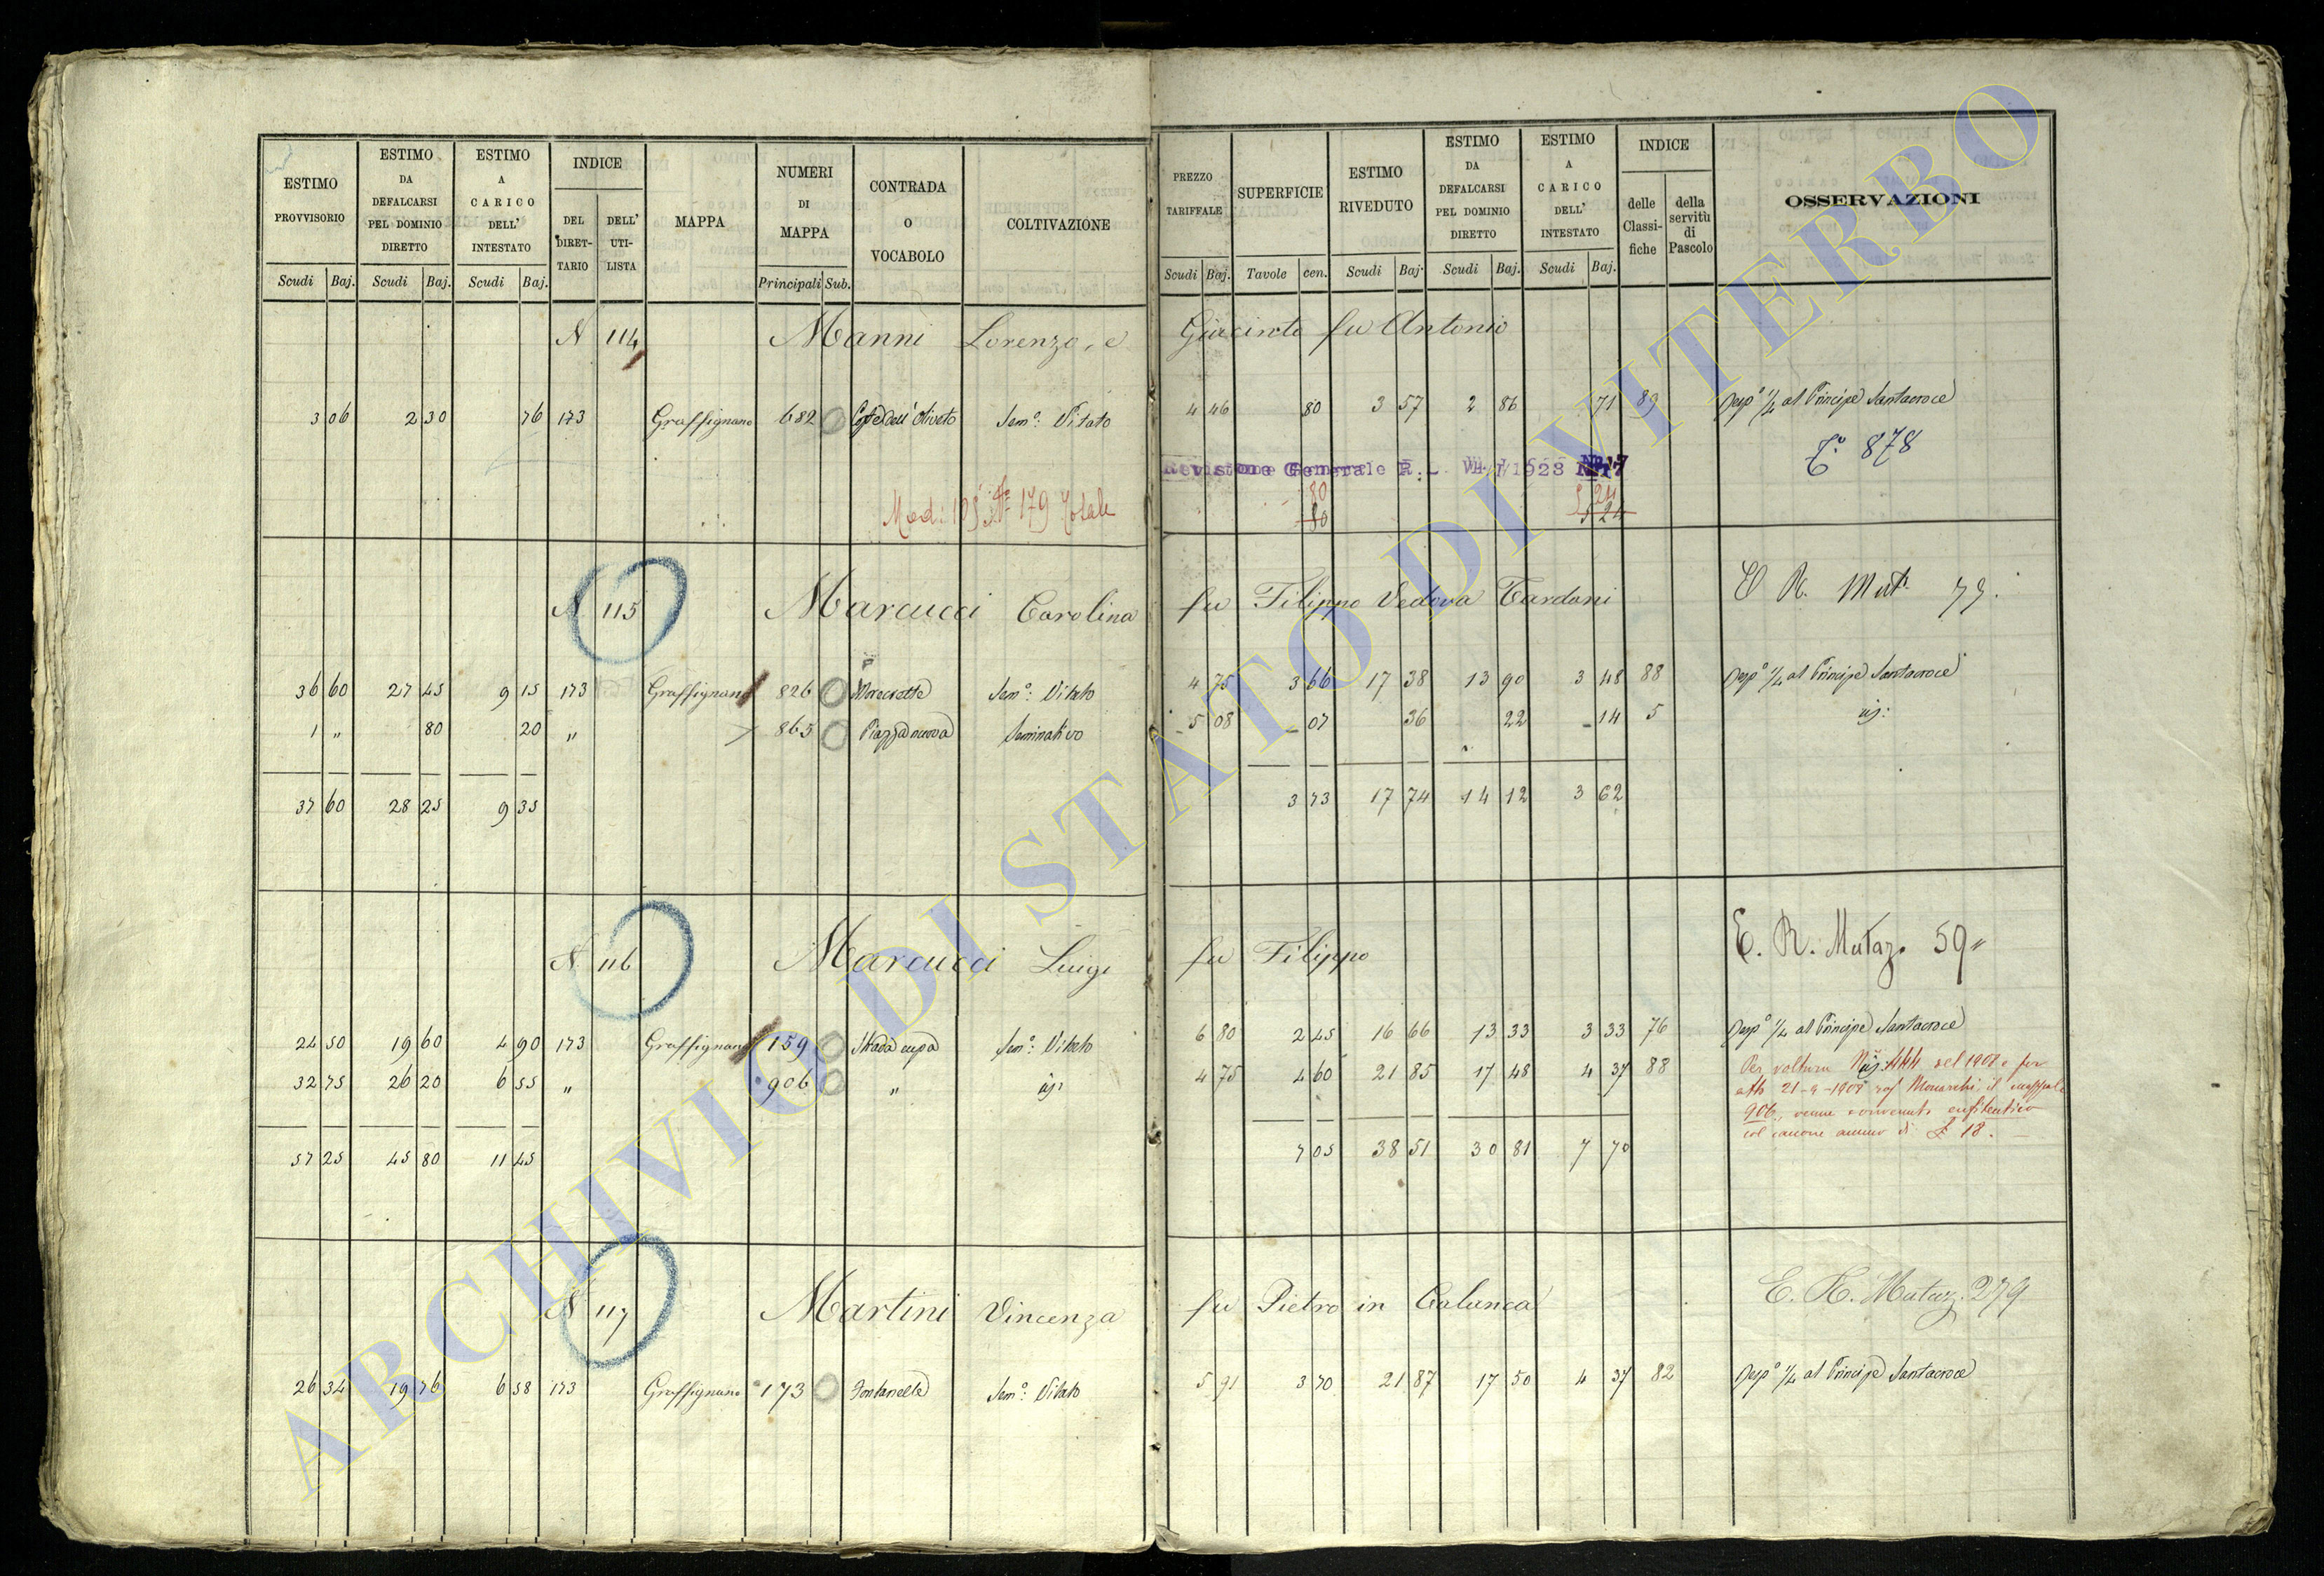 ESTIMO PROVVISORIO
ESTIMO DA DEFALCARSI PEL DOMINIO DIRETTO
ESTIMO A CARICO DELL' INTESTATO
INDICE
DEL DIRET-TARIO
DELL' UTI-LISTA
MAPPA
NUMERI DI MAPPA
CONTRADA O VOCABOLO
COLTIVAZIONE
PREZZO TARIFFALE
SUPERFICIE
ESTIMO RIVEDUTO
ESTIMO DA DEFALCARSI PEL DOMINIO DIRETTO
ESTIMO A CARICO DELL' INTESTATO
INDICE
delle Classi-fiche
della servitù di Pascolo
OSSERVAZIONI
Scudi Baj. Scudi Baj. Scudi Baj. Principali Sub. Scudi Baj. Tavole cen. Scudi Baj. Scudi Baj. Scudi Baj.
N 114 Manni Lorenzo, e Giacinto fu Antonio
3 06 2 30 76 173 Graffignano 682 Coste dell' Oliveto Sem°: Vitato 4 46 80 3 57 2 86 71 89 Risp° 1/4 al Principe Santacroce
T° 878
Revisione Generale R. L. 1923
Mod: 103 N° 179 Totale
80 24
80 24
N 115 Marcucci Carolina fu Filippo Vedova Tardani E R. Mut. 79.
36 60 27 45 9 15 173 Graffignano 826 Morecrette Sem°: Vitato 4 75 3 66 17 38 13 90 3 48 88 Risp° 1/4 al Principe Santacroce
1 " 80 20 " 865 Piazza nuova Seminativo 5 08 07 36 22 14 5
37 60 28 25 9 35 3 73 17 74 14 12 3 62
N 116 Marcucci Luigi fu Filippo E. R. Mutaz. 59"
24 50 19 60 4 90 173 Graffignano 159 Strada cupa Sem°: Vitato 6 80 2 45 16 66 13 33 3 33 76 Risp° 1/4 al Principe Santacroce
32 75 26 20 6 55 " 906 " 4 75 4 60 21 85 17 48 4 37 88
Per voltura N° 444 del 1908 per
atto 21-9-1908 Monarchi il mappale
906, venne enfiteutico
col canone annuo di £ 18.
57 25 45 80 11 45 7 05 38 51 30 81 7 70
N 117 Martini Vincenza fu Pietro in Calanca E. R. Mutaz. 279
26 34 19 76 6 58 173 Graffignano 173 Fontanelle Sem°: Vitato 5 91 3 70 21 87 17 50 4 37 82 Risp° 1/4 al Principe Santacroce
ARCHIVIO DI STATO DI VITERBO